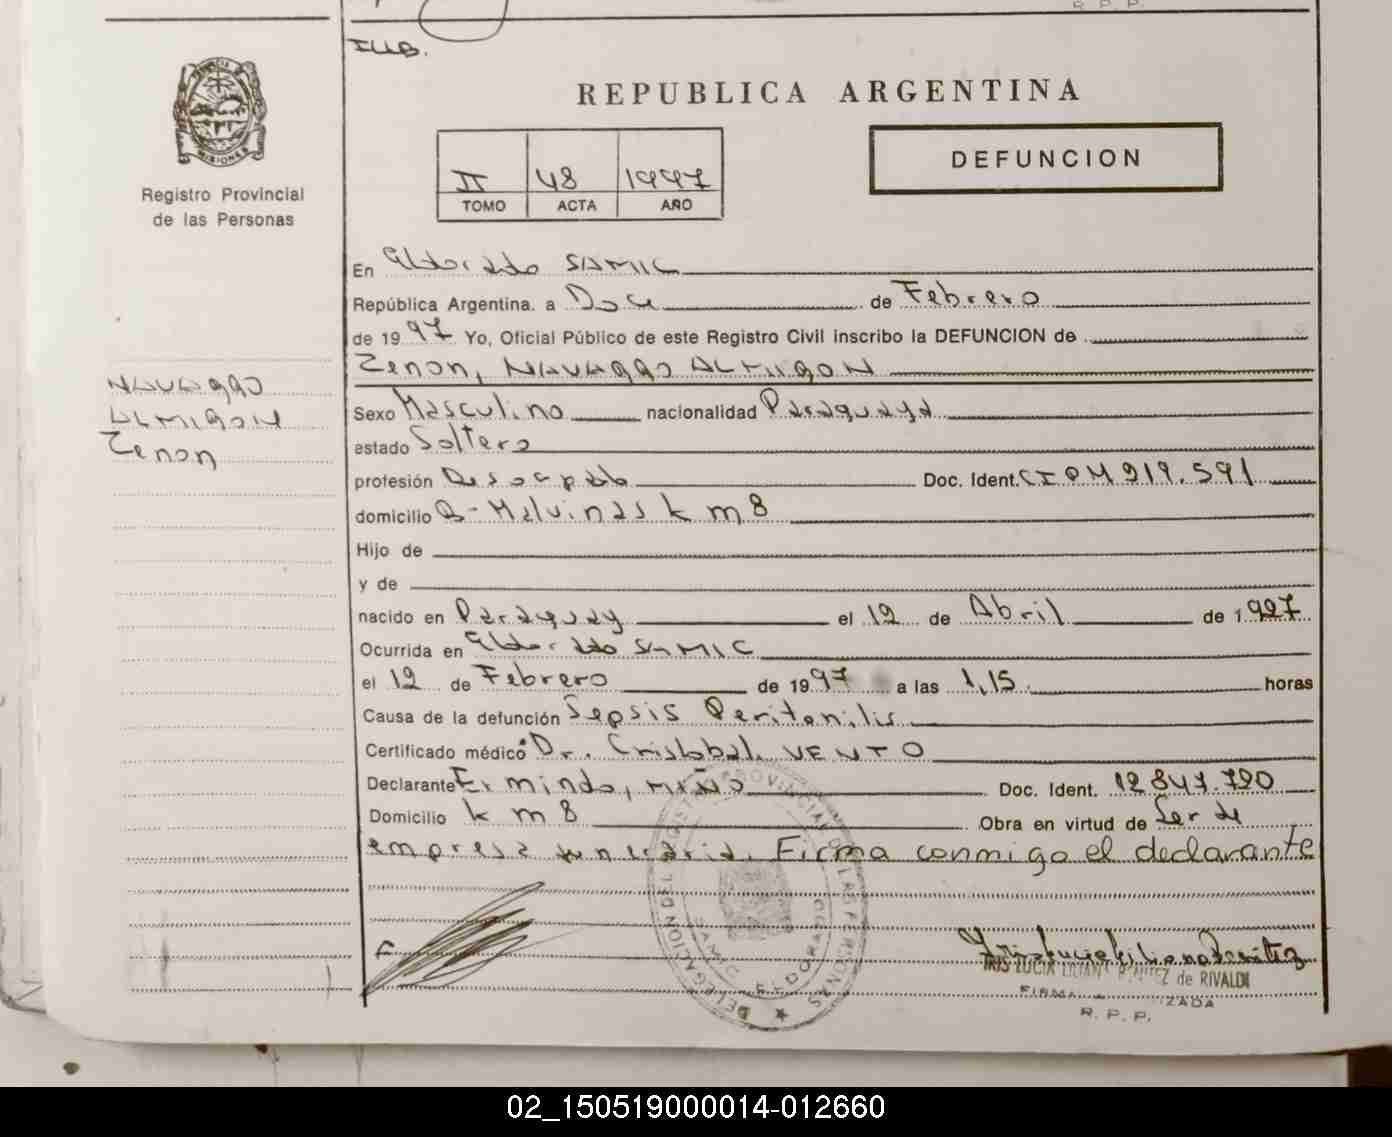 R. P. P.
REPUBLICA ARGENTINA
PROVINCIA DE
MISIONES
Registro Provincial
de las Personas
II 48 1997
TOMO ACTA AÑO
DEFUNCION
En Eldorado SAMIC
República Argentina. a Doce de Febrero
de 1997 Yo, Oficial Público de este Registro Civil inscribo la DEFUNCION de
Zenon, NAVARRO ALMIRON
NAVARRO
ALMIRON
Zenon
Sexo Masculino nacionalidad Paraguaya
estado Soltero
profesión Desocupado Doc. Ident. CIPM 919.591
domicilio B- Malvinas km 8
Hijo de
y de
nacido en Paraguay el 12 de Abril de 1927
Ocurrida en Eldorado SAMIC
el 12 de Febrero de 1997 a las 1,15 horas
Causa de la defunción Sepsis Peritonitis
Certificado médico Dr. Cristobal, VENTO
Declarante Erminda, MIÑO Doc. Ident. 12.847.720
Domicilio km 8 Obra en virtud de Ser de
empresa funeraria. Firma conmigo el declarante
DELEGACION DEL REGISTRO PROVINCIAL DE LAS PERSONAS
SAMIC ELDORADO
IRIS LUCIA LILIANA BENITEZ de RIVALDI
FIRMA AUTORIZADA
R. P. P.
02_150519000014-012660